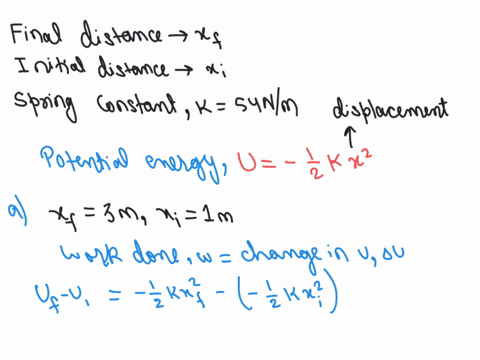 Final distance → x_f
Initial distance → x_i
Spring Constant, K = 54N/m displacement
Potential energy, U = - 1/2 K x²
a) x_f = 3m, x_i = 1m
Work done, w = change in U, ΔU
U_f - U_i = - 1/2 K x_f² - (- 1/2 K x_i²)